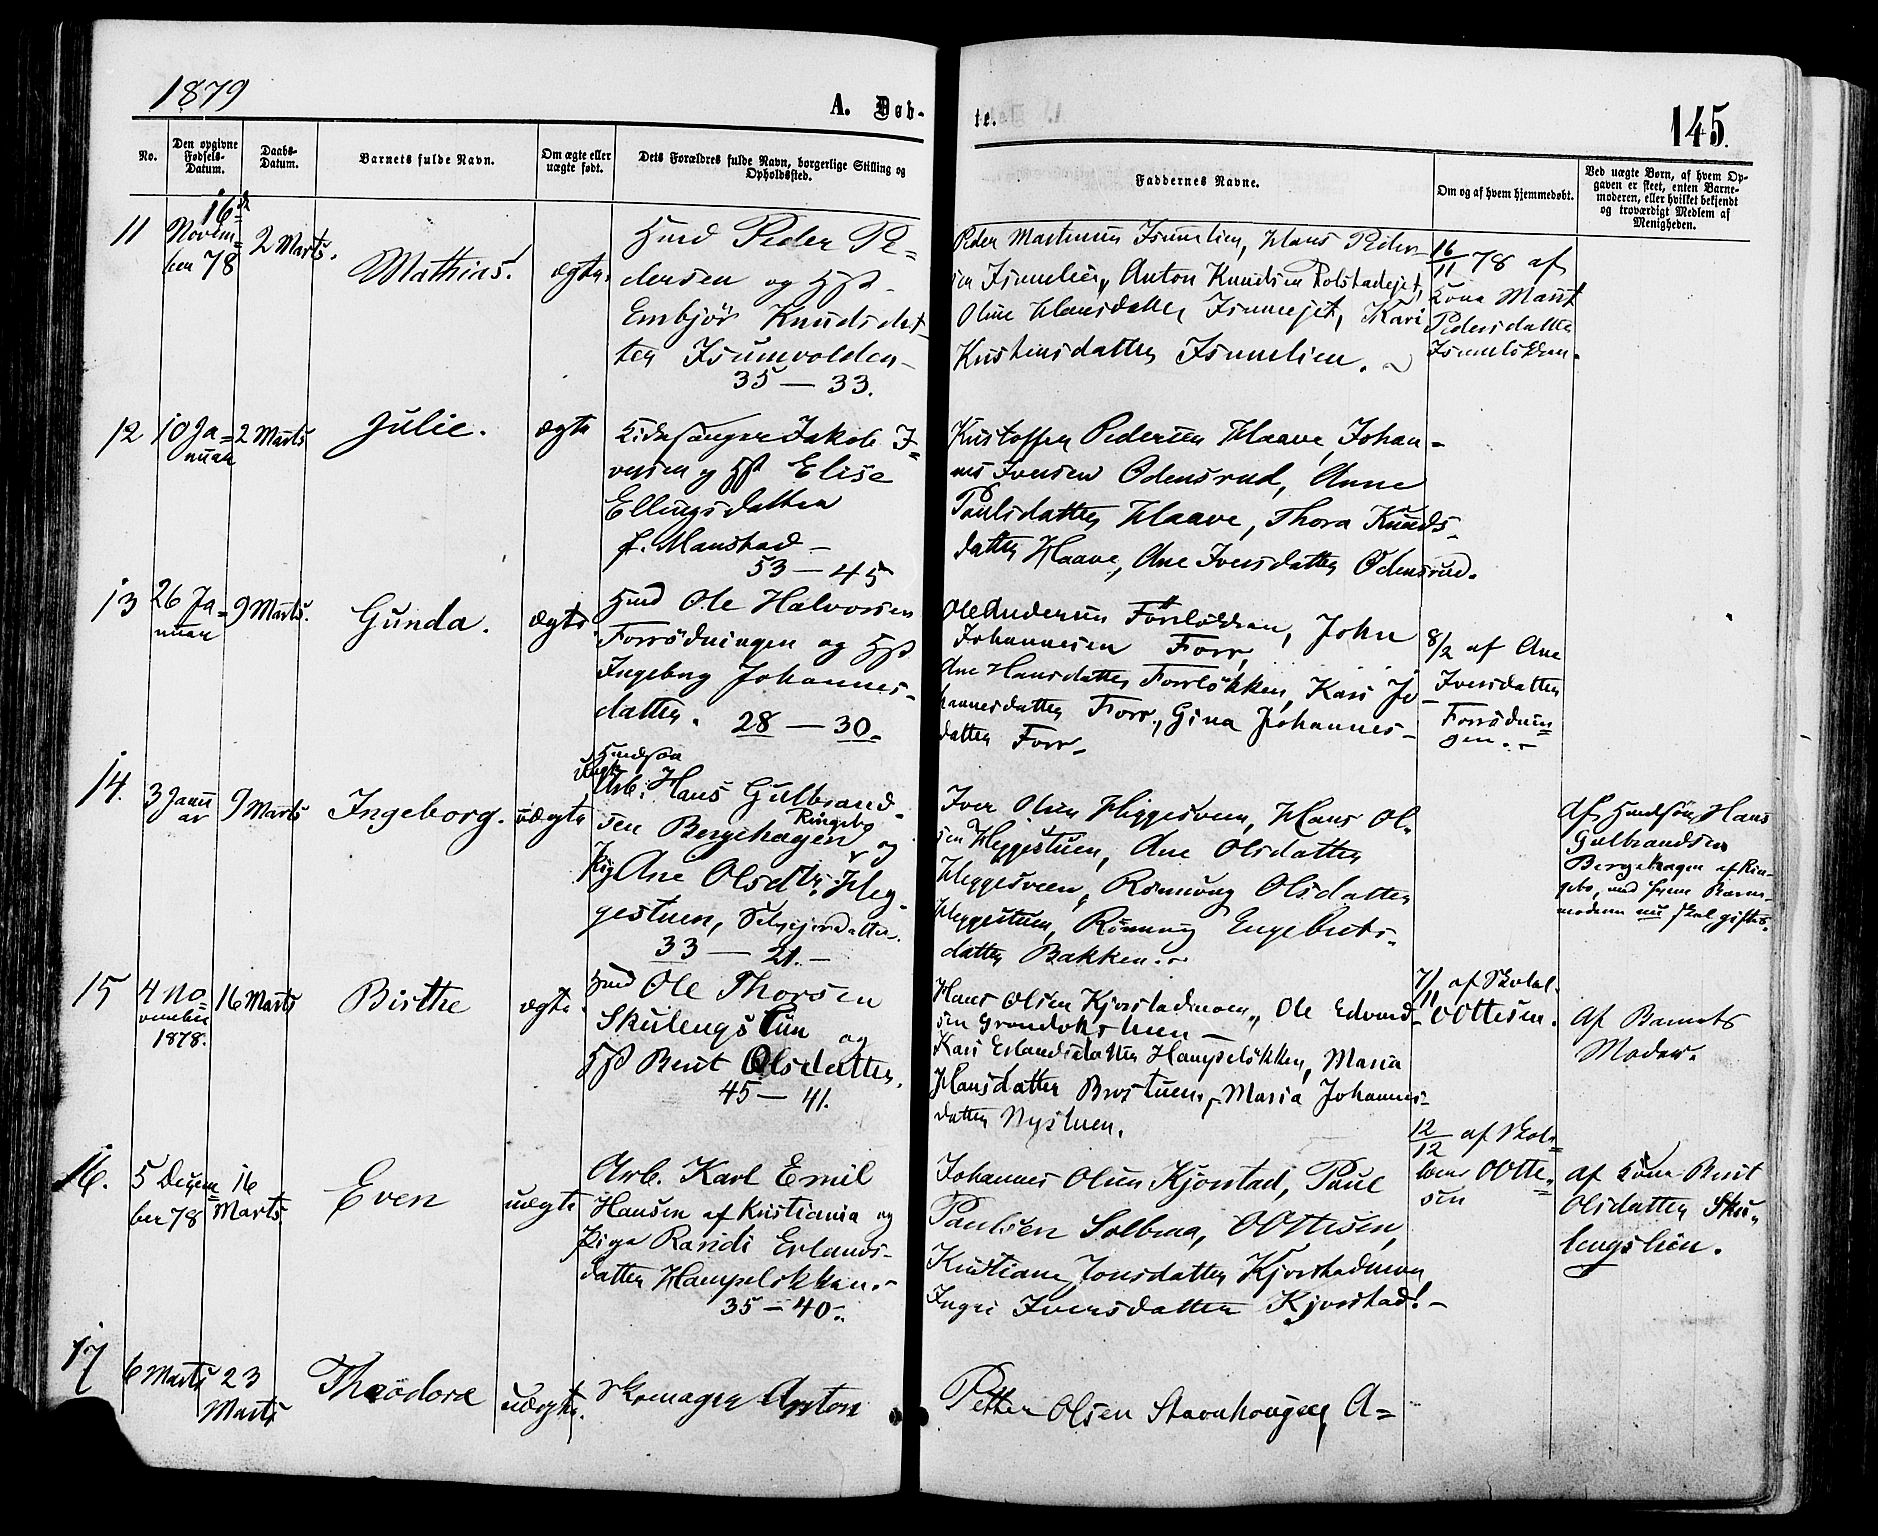 1879
A. Døb-
te.
145.
No.
Den opgivne Fødsels-Datum.
Daabs-Datum.
Barnets fulde Navn.
Om ægte eller uægte født.
Dets Forældres fulde Navn, borgerlige Stilling og Opholdssted.
Faddernes Navne.
Om og af hvem hjemmedøbt.
Ved uægte Børn, af hvem Op-
gaven er skeet, enten Barne-
moderen, eller hvilket bekjendt
og troværdigt Medlem af
Menigheden.
11
16de
Novem=
ber 78
2 Marts.
Mathias.
ægte.
Husmd Peder Pe=
dersen og Hst
Embjør Knudsdat
ter Isumvolden
35 — 33.
Peder Martinsen Isumlien, Hans Peder
sen Isumlien, Anton Knudsen Rolstadejet,
Oline Hansdatter Isumejet, Kari
Kristensdatter Isumlien.
16/11 78 af
Kona Marit
Pedersdatter
Isumløkken.
12
10 Ja=
nuar
2 Marts
Julie.
ægte
Kirkesanger Jakob I=
versen og Hst Elise
Ellingsdatter
f. Manstad —
53 — 45
Kristoffer Pedersen Haave, Johan=
nes Iversen Odensrud, Anne
Paulsdatter Haave, Thora Knuds-
datter Haave, Ane Iversdatter Odensrud.
13
26 Ja=
nuar
9 Marts.
Gunda.
ægte.
Husmd Ole Halvorsen
Forrødningen og Hst
Ingeborg Johannes-
datter. 28 — 30.
Ole Andersen Forrløkken, John
Johannesen Forr,
Ane Hansdatter Forrløkken, Kari Jo
hannesdatter Forr, Gina Johannes-
datter Forr-
8/2 af Ane
Iversdatter
Forrødnin=
gen.
14.
3 Janu
ar
9 Marts
Ingeborg.
uægte
Ungk
Arb. Hans Gulbrand-
sen Bergehagen Ringebo og
Pig Ane Olsdtr. Heg-
gestuen, Selvejerdatter.
33 — 21. —
Iver Olsen Heggesveen, Hans Ol-
sen Heggestuen, Ane Olsdatter
Heggesveen, Rønnoug Olsdatter
Heggestuen, Rønnoug Engebrets-
datter Bakken.
Af Husmdsøn Hans
Gulbrandsen
Bergehagen af Rin-
gebo, med hvem Barne-
moderen nu skal giftes.
15
4 No=
vember
1878.
16 Marts
Birthe
ægte.
Husmd Ole Thorsen
Skulengslien og
Hst Berit Olsdatter.
45 — 41.
Hans Olsen Kjorstadmoen, Ole Edvard-
sen Grondokstuen —
Kari Erlandsdatter Hampeløkken, Maria
Hansdatter Brostuen, Maria Johannes-
datter Nystuen.
7/11 af Skolel.
OOttesen.
Af Barnets
Moder.
16.
5 Decem=
ber 78
16
Marts
Even
uægte
Arb. Karl Emil
Hansen af Kristiania og
Pige Randi Erlands-
datter Hampeløkken.
35 — 40.
Johannes Olsen Kjorstad, Paul
Paulsen Solbraa, OOttesen,
Kristiane Jonsdatter Kjorstadmoen
Ingri Iversdatter Kjorstad. —
12/12 af Skol=
lærer OOtte=
sen
af Kone Berit
Olsdatter Sku-
lengslien.
17
6 Marts
23
Marts
Theodora
uægte.
Skomager Anton
Petter Olsen Stavnhougen, A=